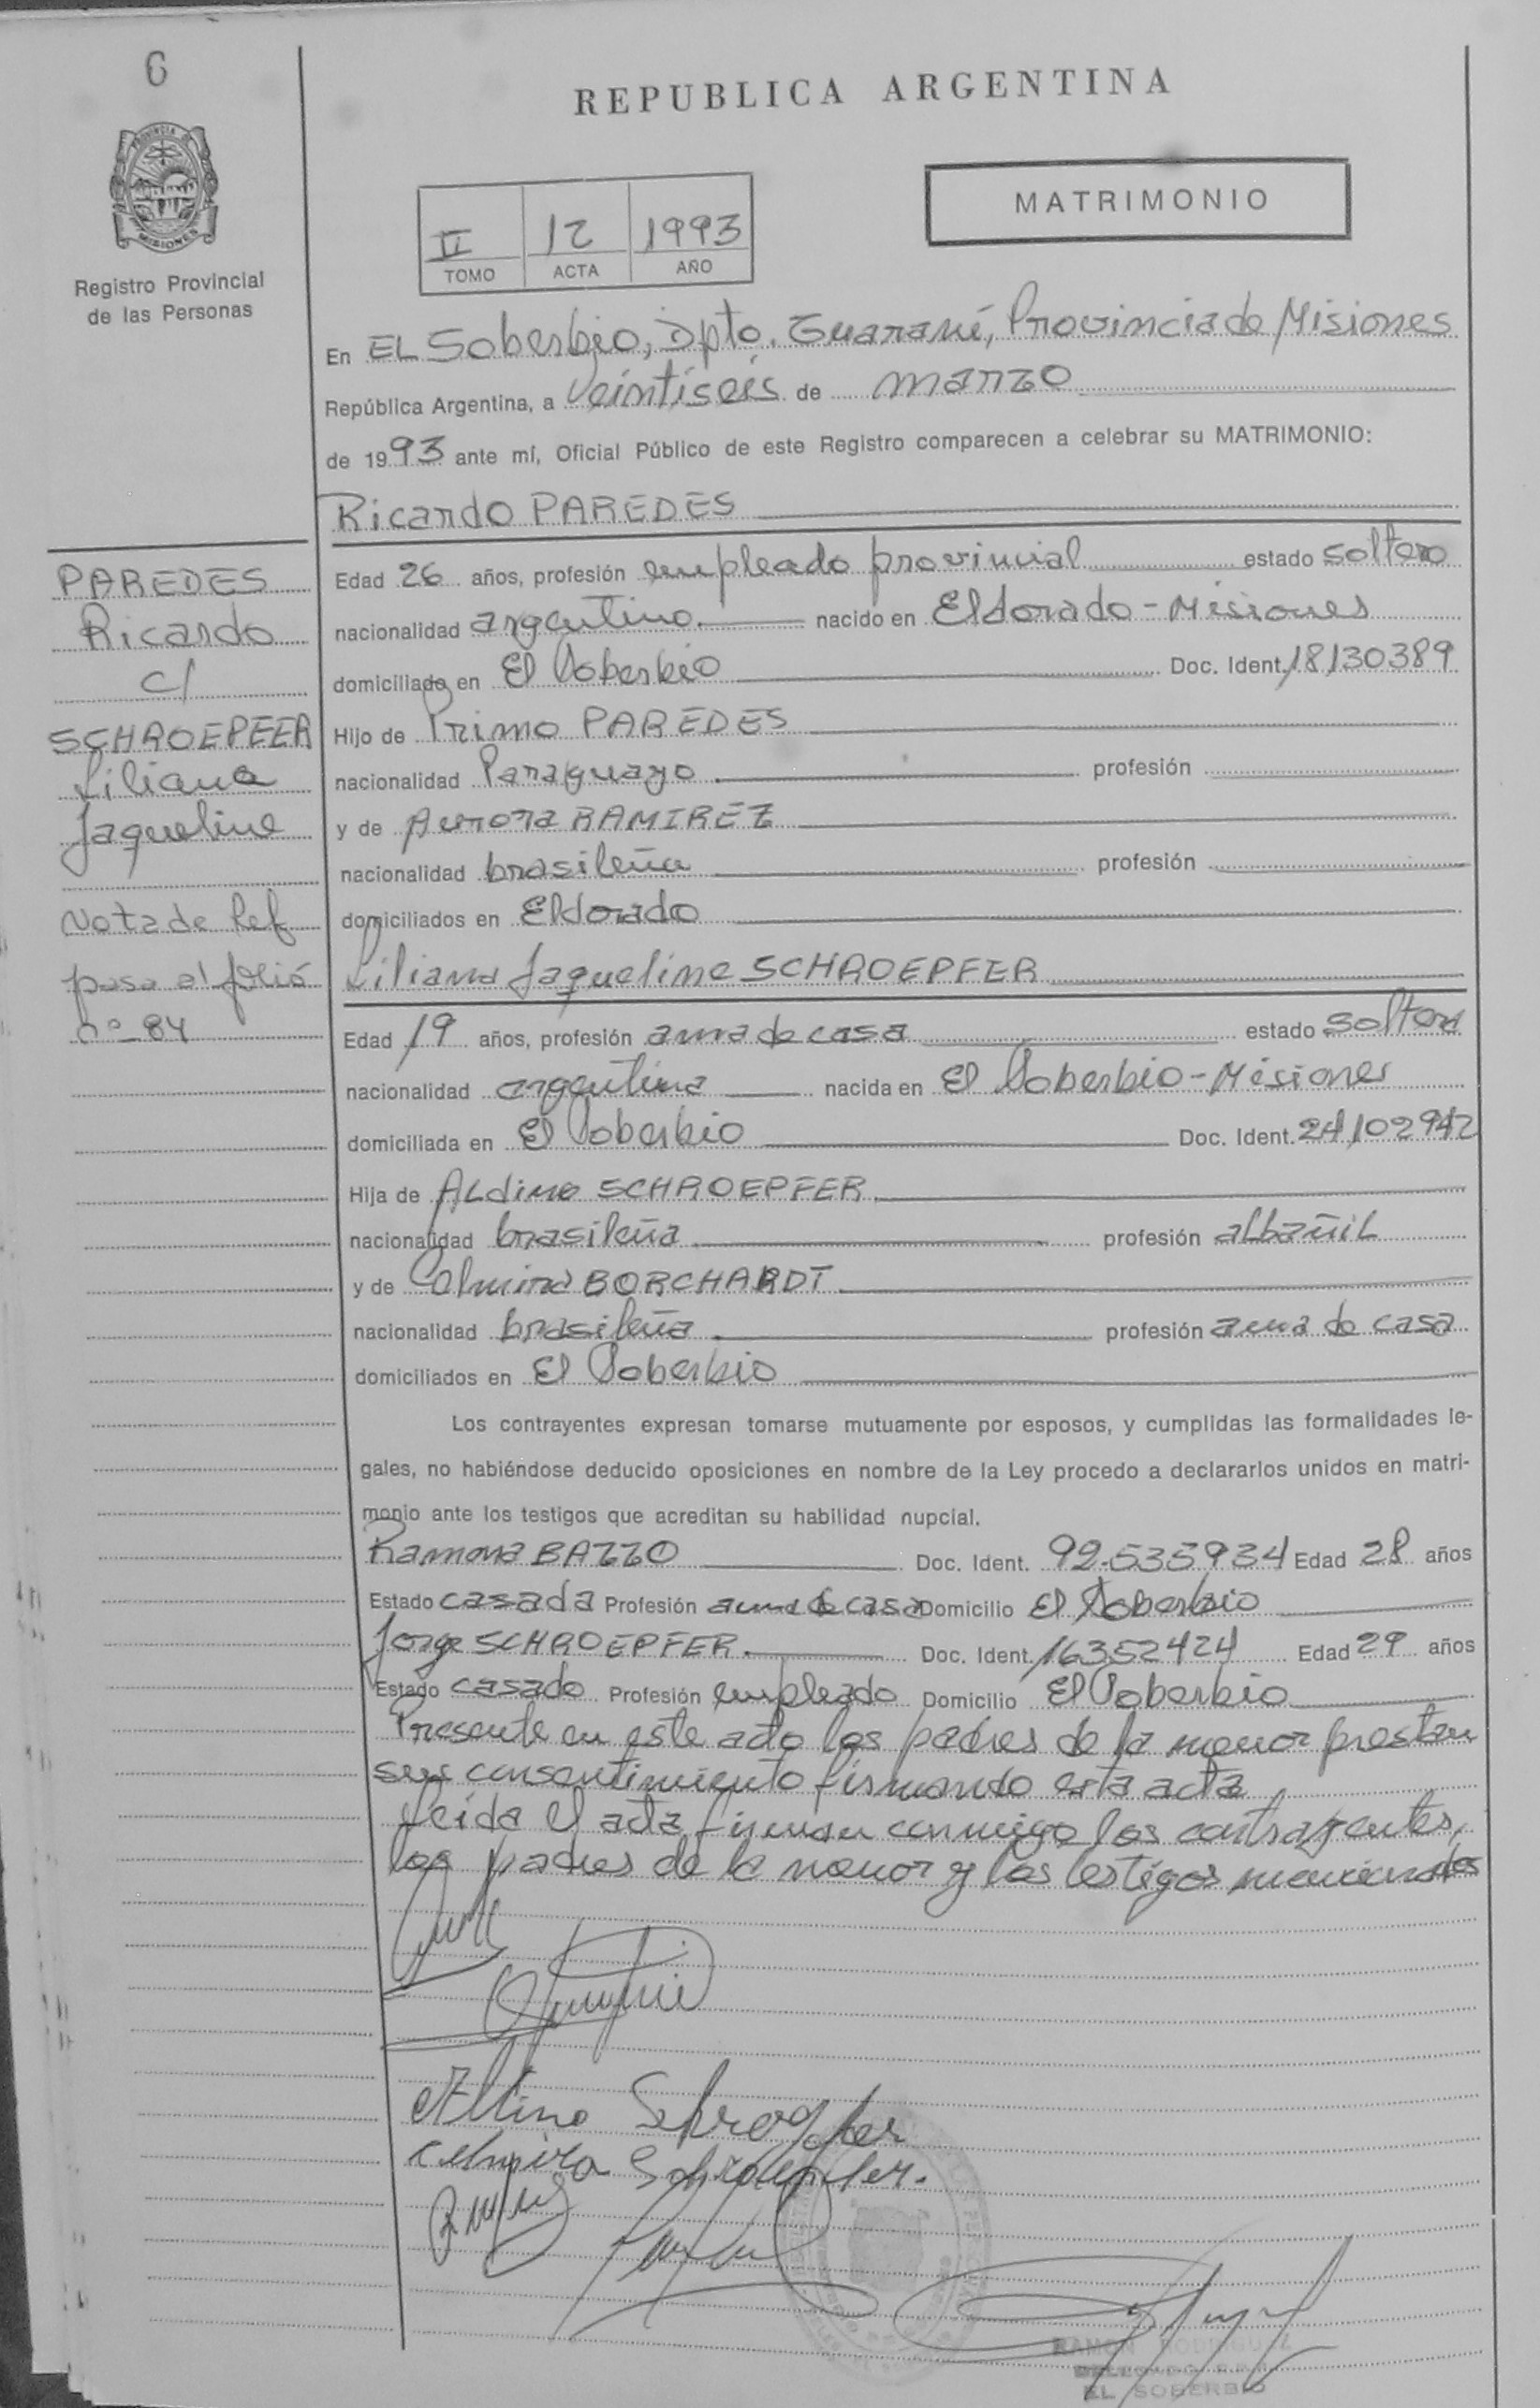 6
REPUBLICA ARGENTINA
PROVINCIA DE
MISIONES
Registro Provincial
de las Personas
II 12 1993
TOMO ACTA AÑO
MATRIMONIO
En EL Soberbio, Dpto. Guaraní, Provincia de Misiones
República Argentina, a Veintiseis de marzo
de 1993 ante mí, Oficial Público de este Registro comparecen a celebrar su MATRIMONIO:
Ricardo PAREDES
PAREDES
Ricardo
c/
SCHROEPFER
Liliana
Jaqueline
Nota de Ref
pasa al folio
nº 84
Edad 26 años, profesión empleado provincial estado soltero
nacionalidad argentino nacido en Eldorado - Misiones
domiciliado en El Soberbio Doc. Ident. 18130389
Hijo de Primo PAREDES
nacionalidad Paraguayo profesión
y de Aurora RAMIREZ
nacionalidad brasileña profesión
domiciliados en Eldorado
Liliana Jaqueline SCHROEPFER
Edad 19 años, profesión ama de casa estado soltera
nacionalidad argentina nacida en El Soberbio - Misiones
domiciliada en El Soberbio Doc. Ident. 24102942
Hija de ALdino SCHROEPFER
nacionalidad brasileña profesión aLbañiL
y de Celmira BORCHARDT
nacionalidad brasileña profesión ama de casa
domiciliados en El Soberbio
Los contrayentes expresan tomarse mutuamente por esposos, y cumplidas las formalidades le-
gales, no habiéndose deducido oposiciones en nombre de la Ley procedo a declararlos unidos en matri-
monio ante los testigos que acreditan su habilidad nupcial.
Ramona BAZZO Doc. Ident. 92.535934 Edad 28 años
Estado casada Profesión ama de casa Domicilio El Soberbio
Jorge SCHROEPFER Doc. Ident. 16352424 Edad 29 años
Estado casado Profesión empleado Domicilio El Soberbio
Presente en este acto los padres de la menor prestan
su consentimiento firmando esta acta
Leida el acta firman conmigo los contrayentes,
los padres de la menor y los testigos mencionados
Celmira
RAMON RODRIGUEZ
DELEGADO
EL SOBERBIO